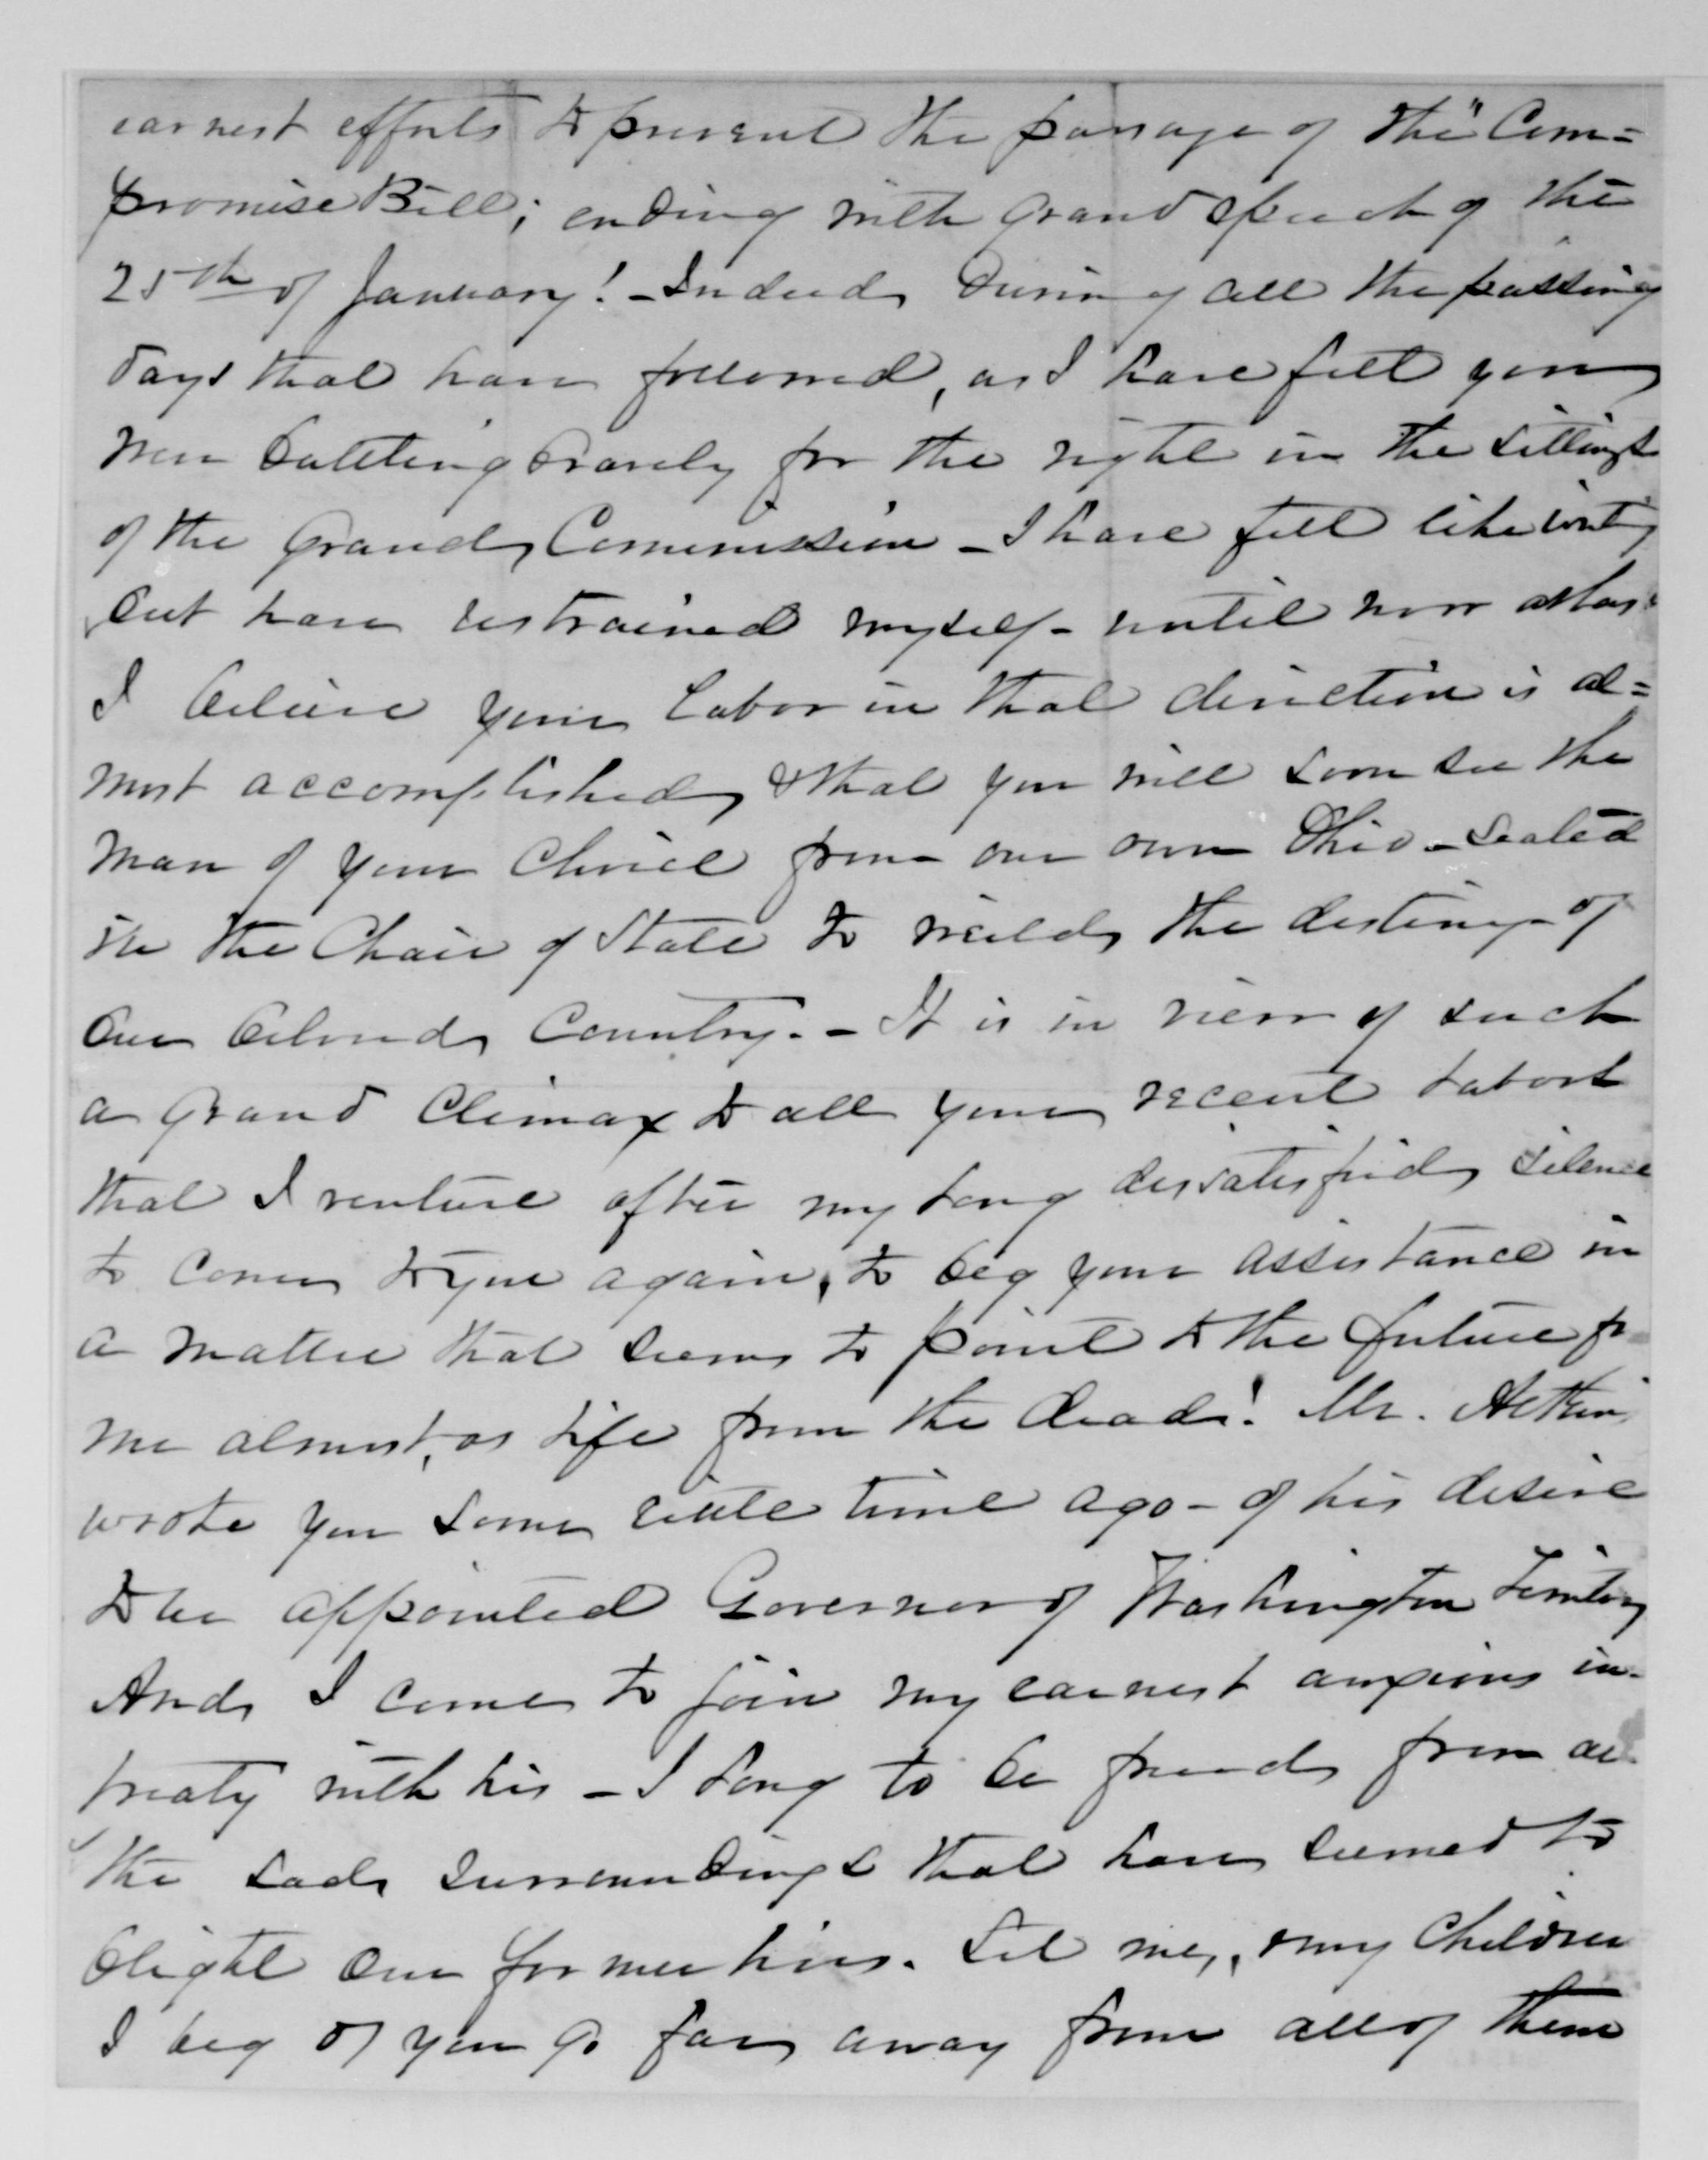 earnest efforts to prevent the passage of the "Com=
promise Bill; ending with grand speech of the
25th of January! - Indeed, during all the passing
days that have followed, as I have felt you
were battling bravely for the right in the sittings
of the Grand Commission - I have felt like writing
but have restrained myself - until now at last
I believe your labor in that direction is al=
most accomplished, & that you will soon see the
man of your choice from our own Ohio - seated
in the Chair of State to wield the destiny of
our beloved Country. - It is in view of such
a grand Climax to all your recent labors
that I venture after my long dissatisfied silence
to come to you again, to beg your assistance in
a matter that seems to point to the future for
me almost, as life from the dead! Mr.
wrote you some little time ago - of his desire
to be appointed Governor of Washington Territory
And I come to join my earnest anxious in-
treaty with his - I long to be freed from all
the sad surroundings that have seemed to
blight our former lives. Let me, & my Children
I beg of you go far away from all of them